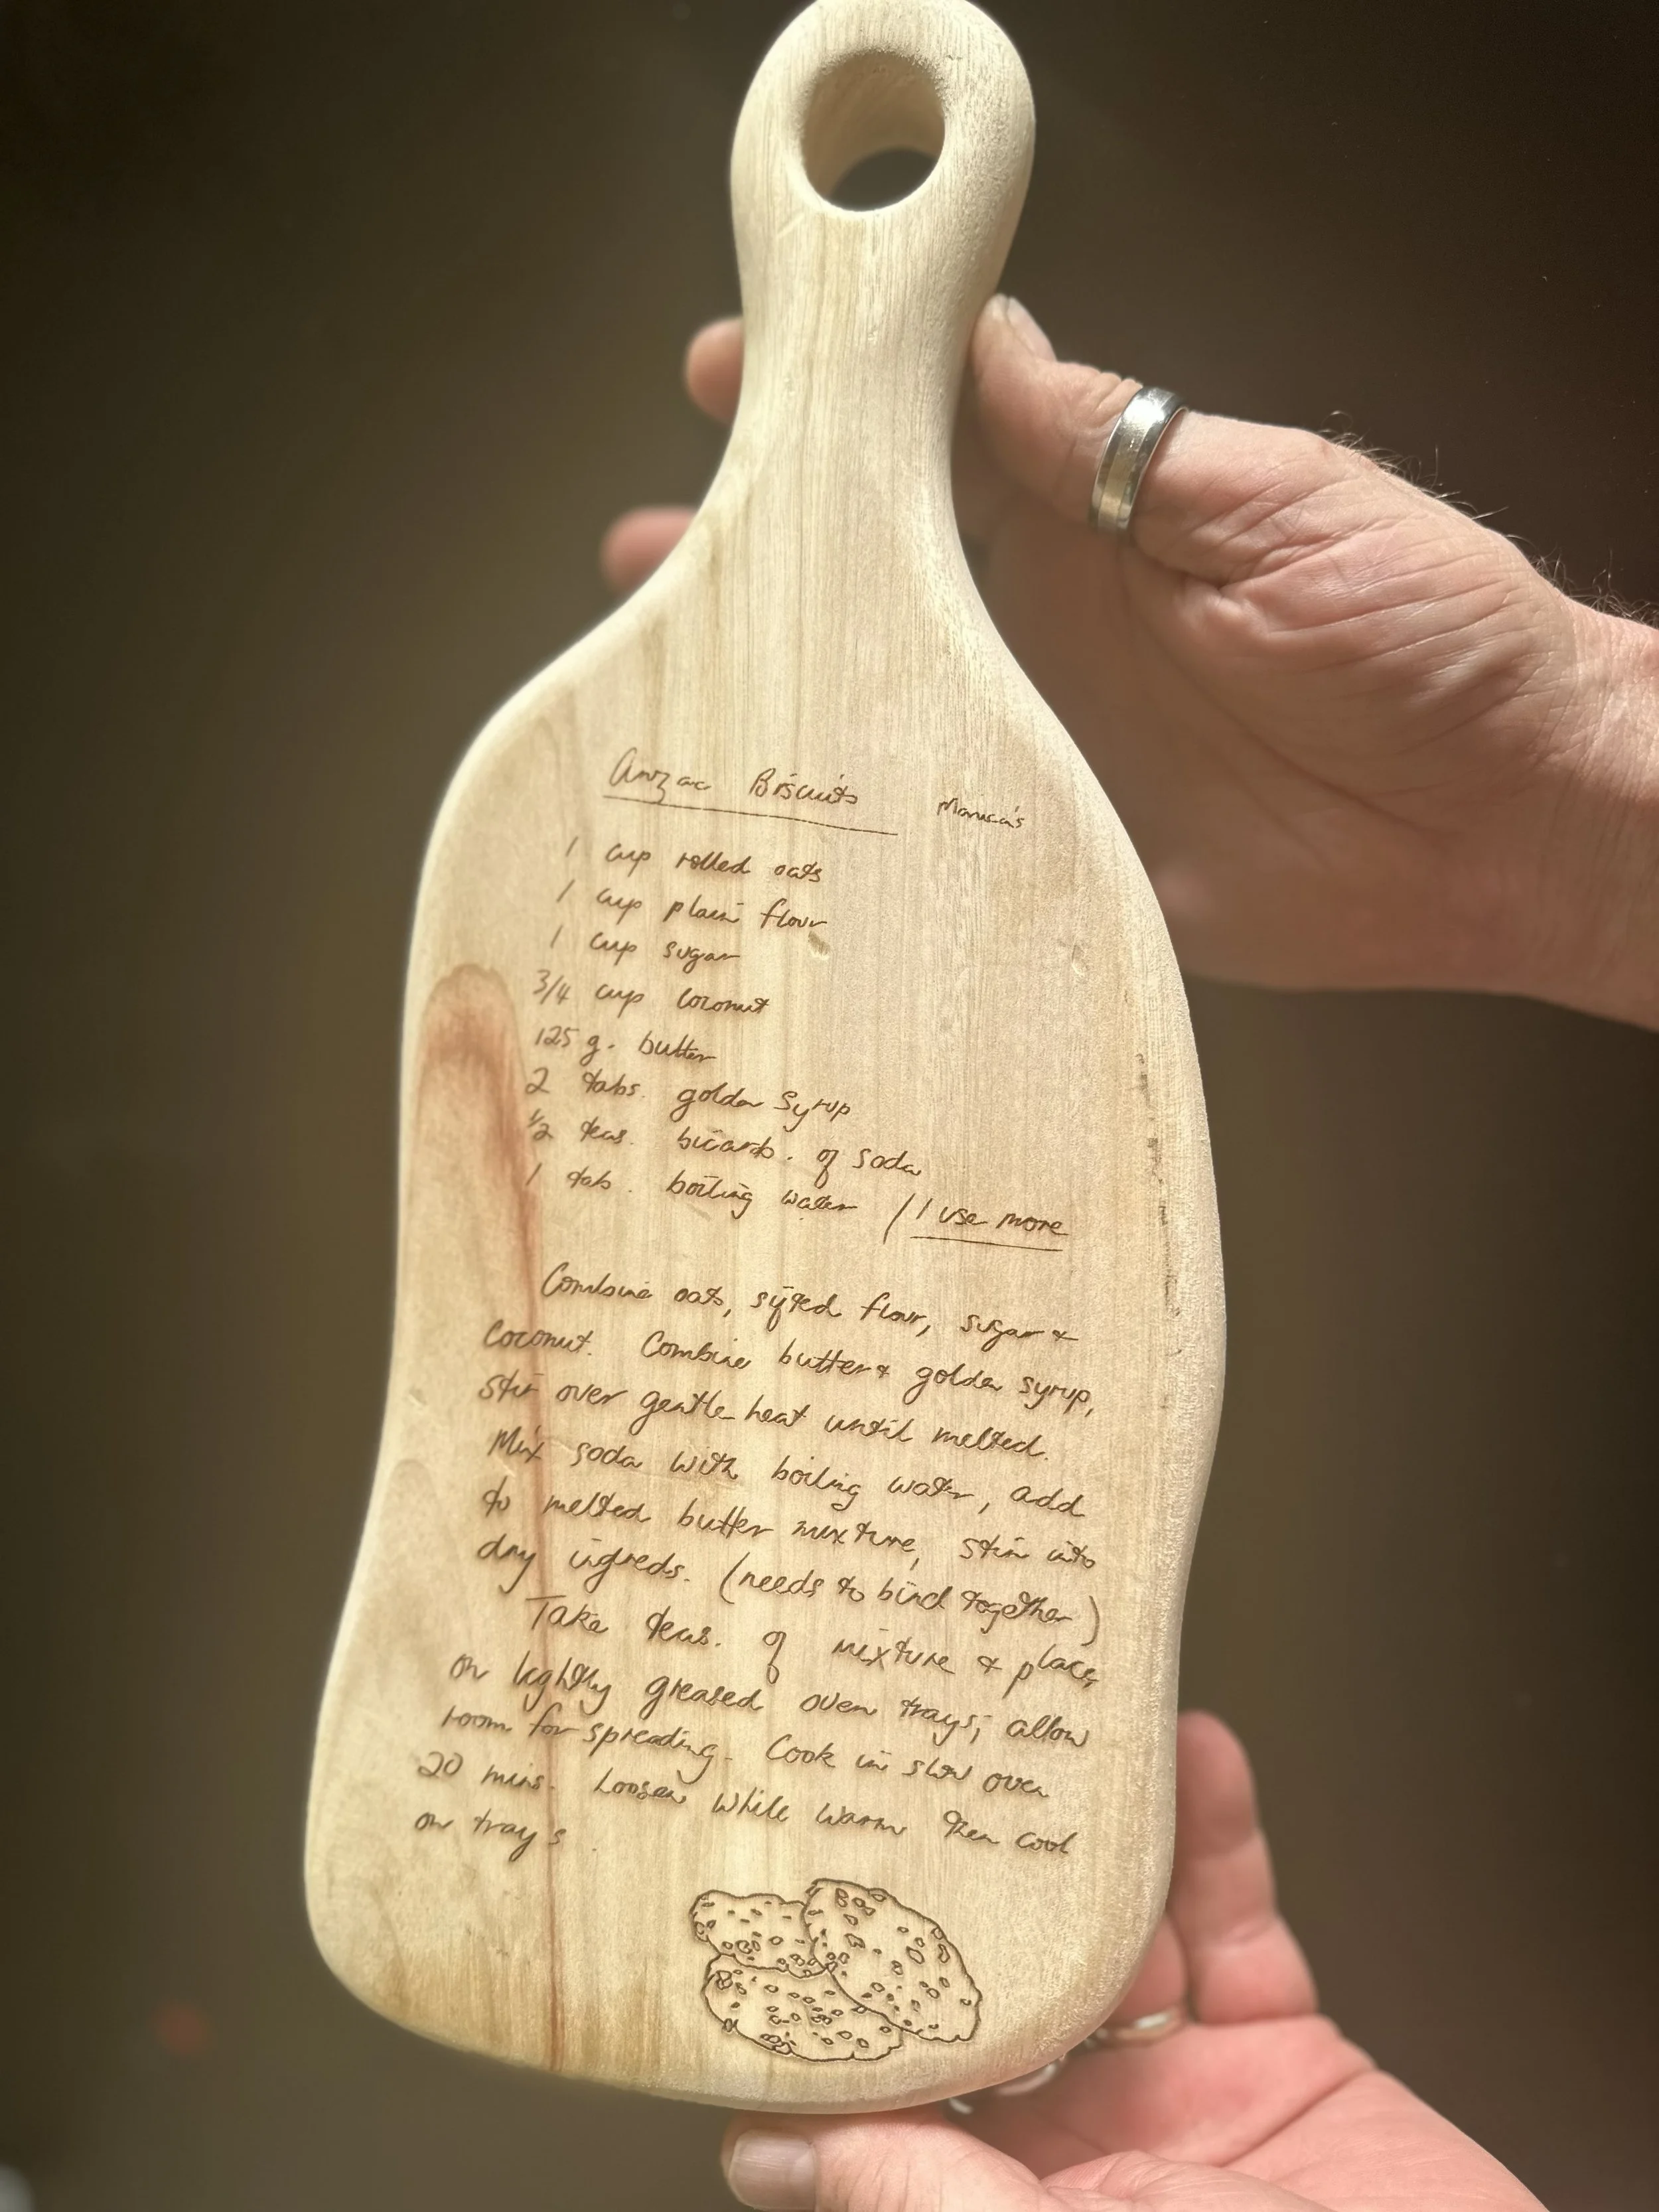 Anzac Biscuits Monica's
1 cup rolled oats
1 cup plain flour
1 cup sugar
3/4 cup coconut
125 g. butter
2 tabs. golden syrup
1/2 teas. bicarb. of soda
1 tab. boiling water / I use more
Combine oats, sifted flour, sugar &
coconut. Combine butter & golden syrup,
stir over gentle heat until melted.
Mix soda with boiling water, add
to melted butter mixture, stir into
dry ingreds. (needs to bind together)
Take teas. of mixture & place
on lightly greased oven trays; allow
room for spreading. Cook in slow oven
20 mins. Loosen while warm then cool
on trays